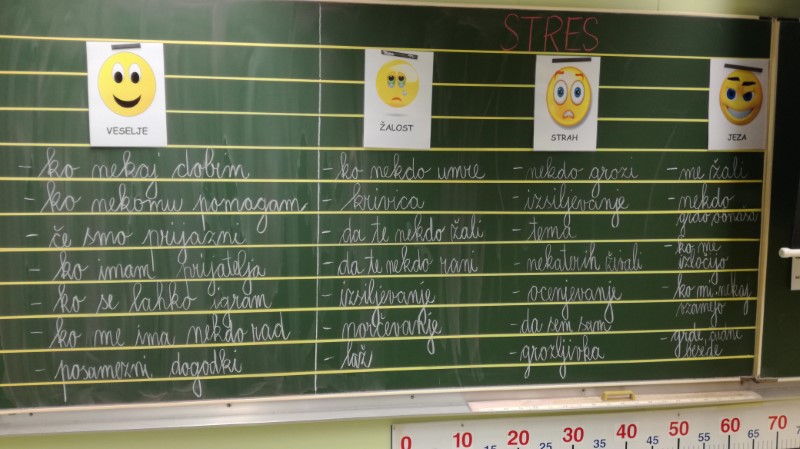 STRES
VESELJE
- ko nekaj dobim
- ko nekomu pomagam
- če smo prijazni
- ko imam prijatelja
- ko se lahko igram
- ko me ima nekdo rad
- posamezni dogodki
ŽALOST
- ko nekdo umre
- krivica
- da te nekdo žali
- da te nekdo rani
- izsiljevanje
- norčevanje
- laž
STRAH
- nekdo grozi
- izsiljevanje
- tema
- nekaterih živali
- ocenjevanje
- da sem sam
- grozljivka
JEZA
- me žali
- nekdo
grdo
- ko me
izločijo
- ko mi nekaj
vzamejo
- grde,
besede
0 10 15 20 25 30 35 40 45 50 55 60 65 70